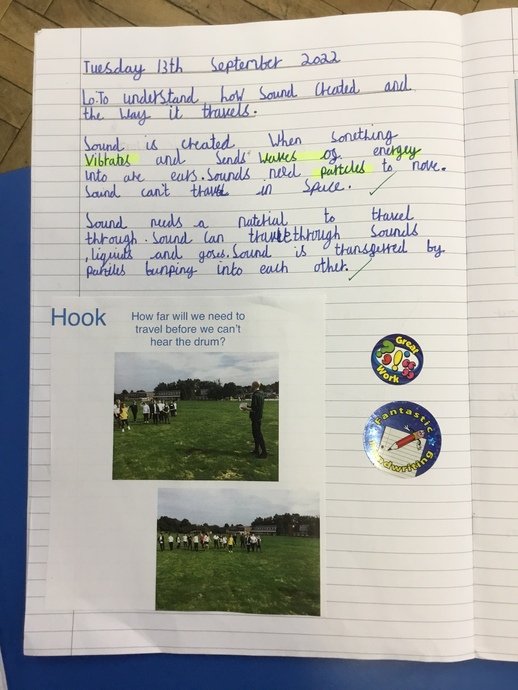 Tuesday 13th September 2022
Lo.To understand how Sound Created and
the way it travels.
Sound is created When Somthing
Vibrates and Sends Waves of energey
into are ears. Sounds need particles to move.
Sound can't travel in Space.
Sound needs a material to travel
through. Sound can travel through Sounds
, liquids and gases. Sound is transferred by
particles bumping into each other.
Hook
How far will we need to
travel before we can't
hear the drum?
Great
Work
Fantastic
Handwriting